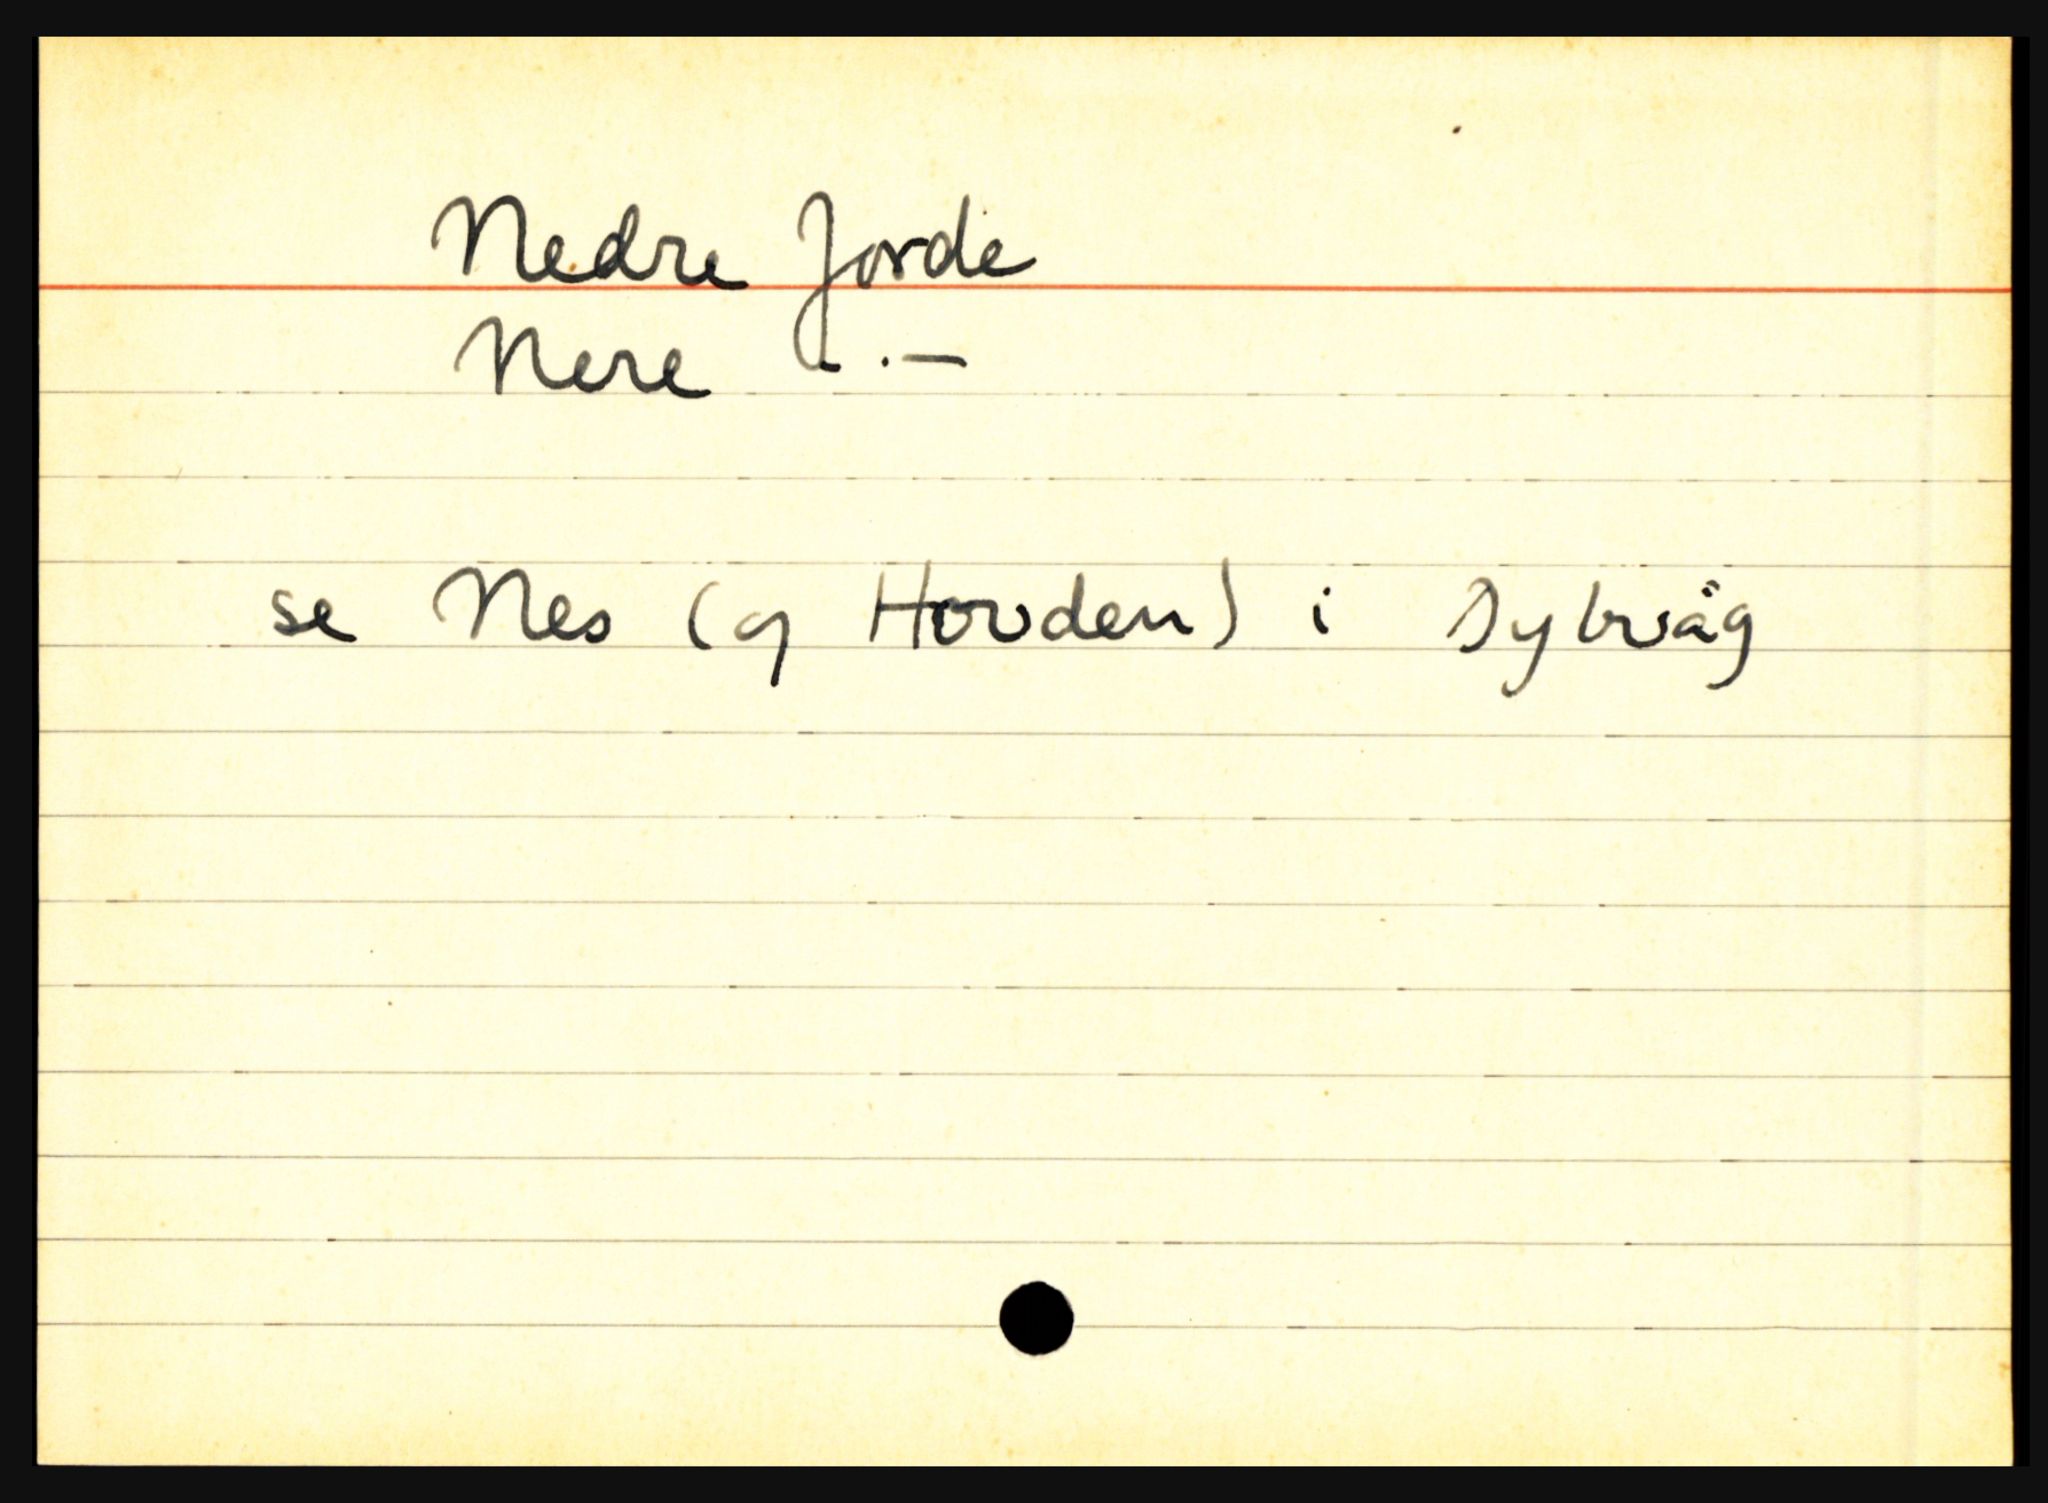 Nedre Jorde
Nere -.-
se Nes (og Hovden) i Dybvåg